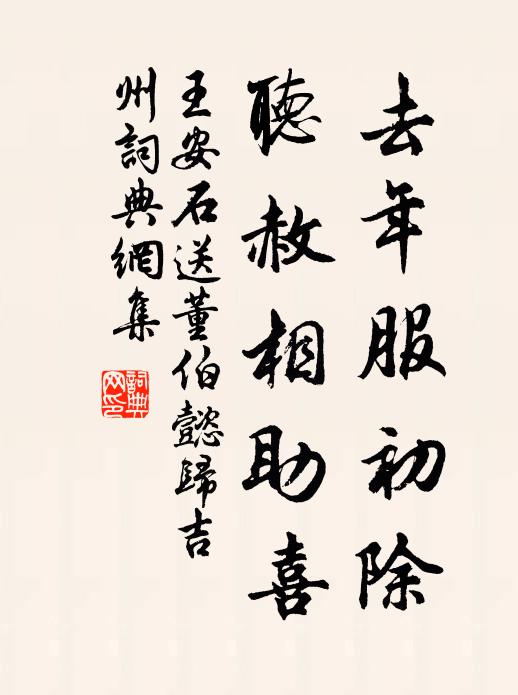 去年服初除
聽赦相助喜
王安石送董伯懿歸吉
州詞典網集
詞典
网印